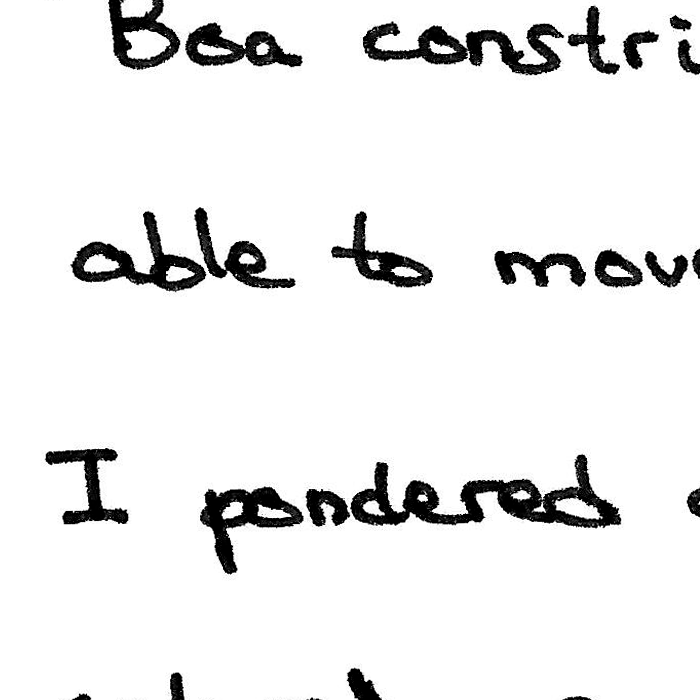 Boa constri
able to mov
I pondered